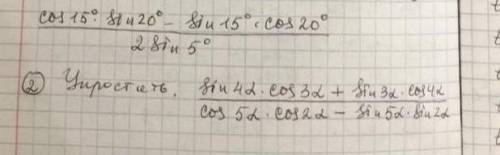 cos 15° · sin 20° − sin 15° · cos 20°
2 sin 5°
② Упростить. sin 4α · cos 3α + sin 3α · cos 4α
cos 5α · cos 2α − sin 5α · sin 2α